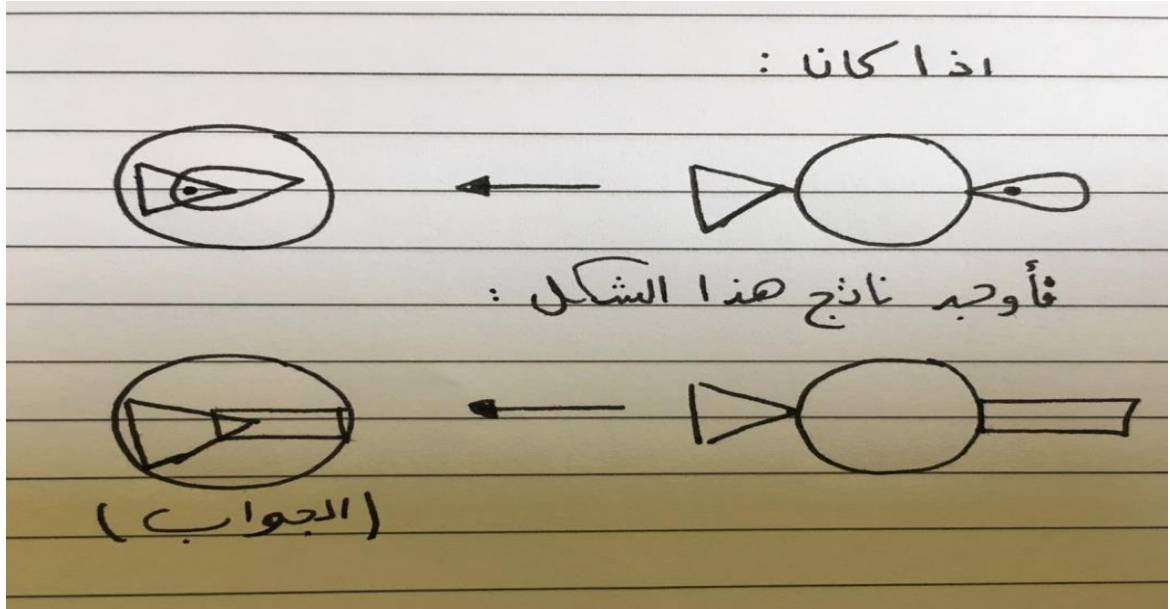 اذا كانا :
فأوجد ناتج هذا الشكل :
(الجواب)